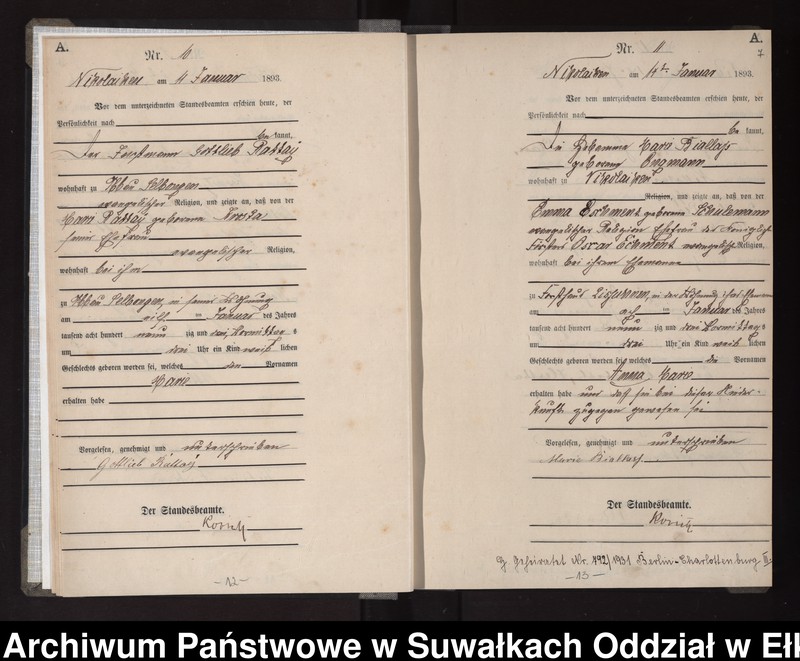 A.
Nr. 10
Nikolaiken am 11 Januar 1893.
Vor dem unterzeichneten Standesbeamten erschien heute, der
Persönlichkeit nach
be kannt,
Der Gottlieb Rattay
wohnhaft zu Abbau Selbongen
evangelischer Religion, und zeigte an, daß von der
Marie Rattay geborene
seiner Ehefrau
evangelischer Religion,
wohnhaft bei ihm
zu Abbau Selbongen, in seiner Wohnung
am elf ten Januar des Jahres
tausend acht hundert neun zig und drei Vormittags
um drei Uhr ein Kind weib lichen
Geschlechts geboren worden sei, welches den Vornamen
Marie
erhalten habe
Vorgelesen, genehmigt und unterschrieben
Gottlieb Rattay
Der Standesbeamte.
-12-
A.
7
Nr. 11
Nikolaiken am 14ten Januar 1893.
Vor dem unterzeichneten Standesbeamten erschien heute, der
Persönlichkeit nach
be kannt,
Die Hebamme Marie Biallass
geborene
wohnhaft zu Nikolaiken
Religion, und zeigte an, daß von der
Emma Eschment geborene
evangelischer Religion Ehefrau des Königlichen
Försters Oscar Eschment evangelisch Religion,
wohnhaft bei ihrem Ehemanne
zu Forsthaus in der Wohnung ihres
am ach ten Januar des Jahres
tausend acht hundert neun zig und drei Vormittags
um drei Uhr ein Kind weib lichen
Geschlechts geboren worden sei, welches die Vornamen
Anna Marie
erhalten habe und daß sie bei dieser Nieder-
kunft zugegen gewesen sei
Vorgelesen, genehmigt und unterschrieben
Marie Biallass
Der Standesbeamte.
G Geheiratet Nr. 492/1931 Berlin-Charlottenburg III.
-13-
Archiwum Państwowe w Suwałkach Oddział w Ełk